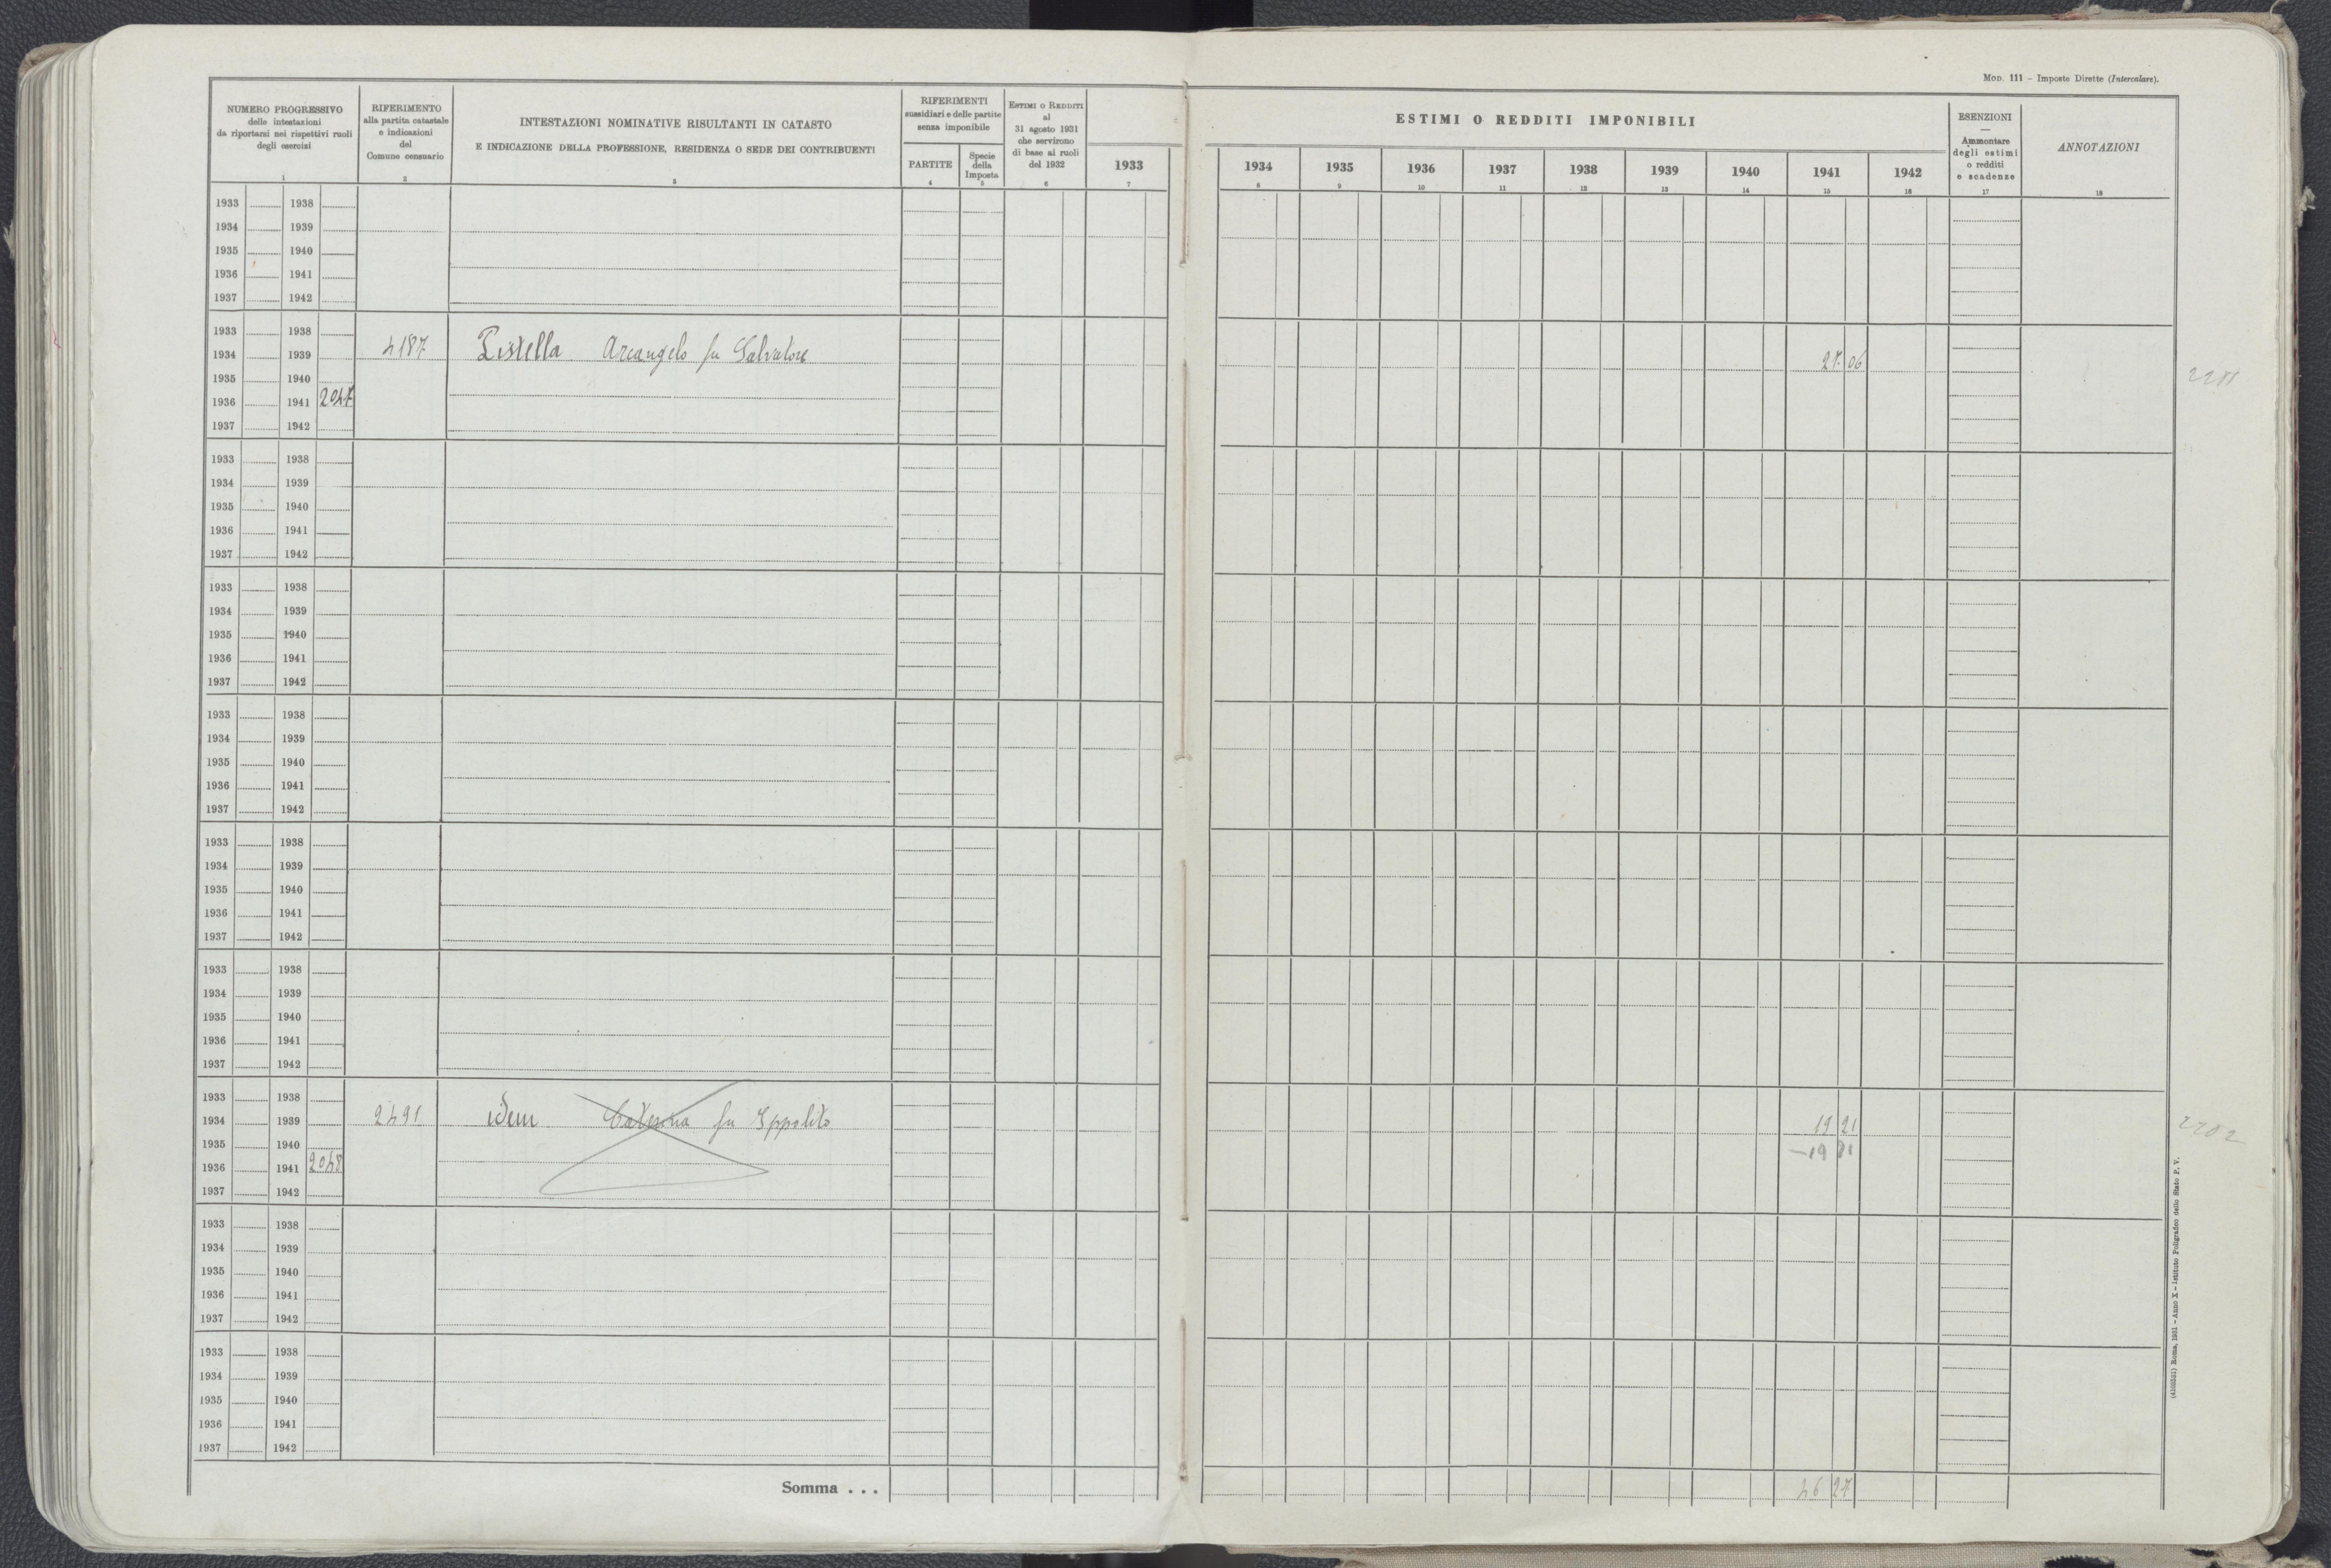 MOD. 111 - Imposte Dirette (Intercalare).
NUMERO PROGRESSIVO
delle intestazioni
da riportarsi nei rispettivi ruoli
degli esercizi
1
RIFERIMENTO
alla partita catastale
e indicazioni
del
Comune censuario
2
INTESTAZIONI NOMINATIVE RISULTANTI IN CATASTO
E INDICAZIONE DELLA PROFESSIONE, RESIDENZA O SEDE DEI CONTRIBUENTI
3
RIFERIMENTI
sussidiari e delle partite
senza imponibile
PARTITE
4
Specie
della
Imposta
5
ESTIMI O REDDITI
al
31 agosto 1931
che servirono
di base ai ruoli
del 1932
6
1933
7
ESTIMI O REDDITI IMPONIBILI
1934 1935 1936 1937 1938 1939 1940 1941 1942
8 9 10 11 12 13 14 15 16
ESENZIONI
—
Ammontare
degli estimi
o redditi
e scadenze
17
ANNOTAZIONI
18
1933 1938
1934 1939
1935 1940
1936 1941
1937 1942
1933 1938
1934 1939 4187 Pistella Arcangelo fu Salvatore 27 06
1935 1940
1936 1941 2047
1937 1942
1933 1938
1934 1939
1935 1940
1936 1941
1937 1942
1933 1938
1934 1939
1935 1940
1936 1941
1937 1942
1933 1938
1934 1939
1935 1940
1936 1941
1937 1942
1933 1938
1934 1939
1935 1940
1936 1941
1937 1942
1933 1938
1934 1939
1935 1940
1936 1941
1937 1942
1933 1938
1934 1939 2491 idem Caterina fu Ippolito 19 21 2202
1935 1940
1936 1941 2048
1937 1942
1933 1938
1934 1939
1935 1940
1936 1941
1937 1942
1933 1938
1934 1939
1935 1940
1936 1941
1937 1942
Somma . . . 46 27
Roma, 1931 - Anno X - Istituto Poligrafico dello Stato P. V.